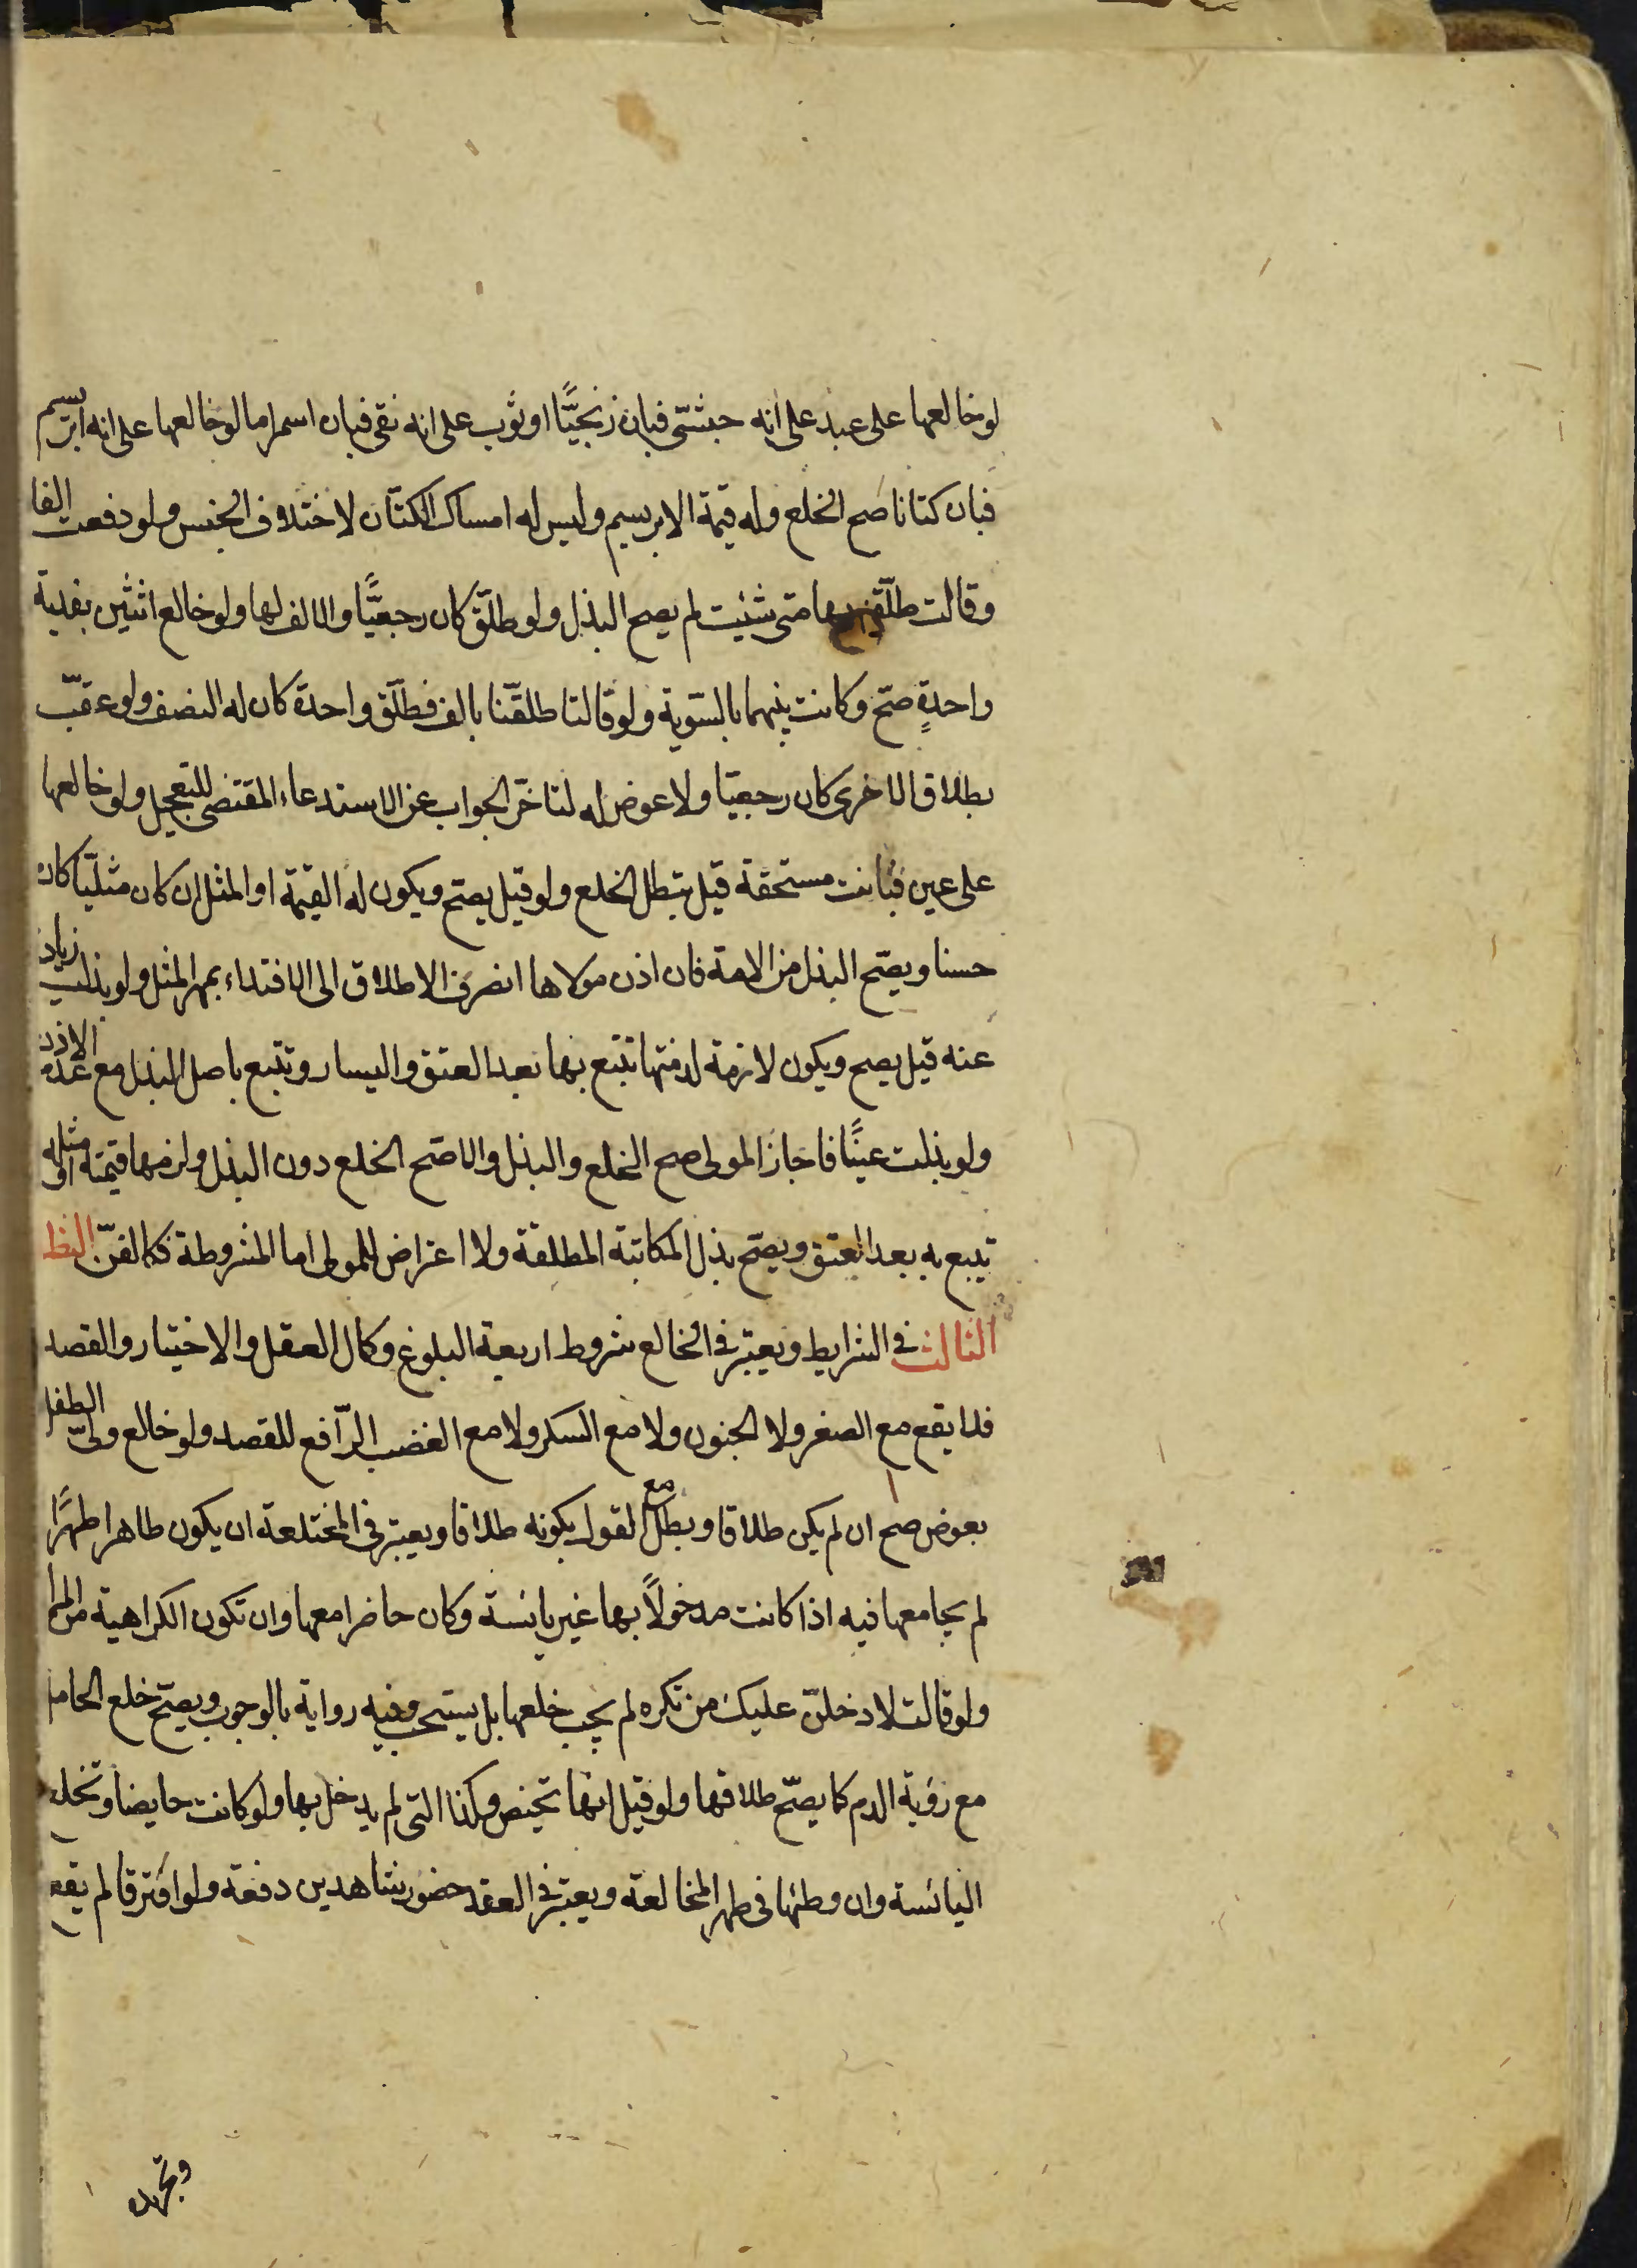 لو خالعها على عبد على انه حبشىّ فبان زنجيًّا او ثوب على انه نقى فبان اسمر اما لو خالعها على انه ابريسم
فبان كتانا صح الخلع وله قيمة الابريسم وليس له امساك الكتّان لاختلاف الجنس ولو دفعت الفا
وقالت طلّقنى بها متى شئت لم يصح البذل ولو طلّق كان رجعيًّا والالف لها ولو خالع اثنتين بفدية
واحدةٍ صحّ وكانت بينهما بالسّوية ولو قالتا طلقّنا بالف فطلّق واحدة كان له النصف ولو عقبّ
بطلاق الاخرى كان رجعيّا ولا عوض له لتاخّر الجواب عن الاستدعاء المقتضى للتعجيل ولو خالعها
على عين فبانت مستحقة قيل يبطل الخلع ولو قيل يصحّ ويكون له القيمة او المثل ان كان مثليّا كان
حسنا ويصّح البذل من الامة فان اذن مولاها انصرف الاطلاق الى الافتداء بمهر المثل ولو بذلت زيادة
عنه قيل يصح ويكون لازمة لذمتها تتبع بها بعد العتق واليسار وتتبع باصل البذل مع عدم الاذن
ولو بذلت عينًا فاجاز المولى صح الخلع والبذل والا صّح الخلع دون البذل ولزمها قيمته او مثله
تتبع به بعد العتق ويصحّ بذل المكاتبة المطلقة ولا اعتراض للمولى اما المشروطة فكالقنّ النظر
الثالث فى الشرايط ويعتبر فى الخالع شروط اربعة البلوغ وكمال العقل والاختيار والقصد
فلا يقع مع الصغر ولا الجنون ولا مع السكر ولا مع الغضب الرّافع للقصد ولو خالع ولىّ الطفل
بعوض صح ان لم يكن طلاقا وبطل مع القول بكونه طلاقا ويعتبر فى المختلعة ان يكون طاهرا طهرًا
لم يجامعها فيه اذا كانت مدخولاً بها غير يائسة وكان حاضرا معها وان تكون الكراهية من المراة
ولو قالت لادخلنّ عليك من تكره لم يجب خلعها بل يستحب وفيه رواية بالوجوب ويصحّ خلع الحامل
مع رؤية الدم كما يصّح طلاقها ولو قيل انها تحيض وكذا التى لم يدخل بها ولو كانت حايضا وتخلع
اليائسة وان وطئها فى طهر المخالعة ويعتبر فى العقد حضور شاهدين دفعة ولو افترقا لم يقع
وتجريده